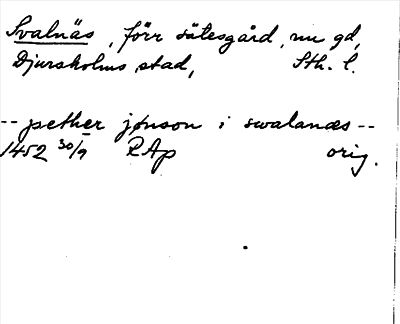 Svalnäs, förr sätesgård, nu gd,
Djursholms stad, Sth. l.
-- pether jønson i swalanæs --
1452 30/9 RAp orig.